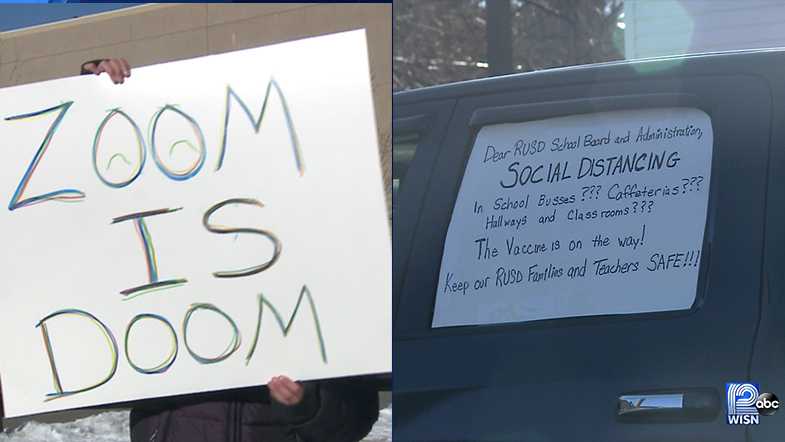 ZOOM
IS
DOOM
Dear RUSD School Board and Administration,
SOCIAL DISTANCING
In School Busses??? Caffeterias???
Hallways and Classrooms???
The Vaccine is on the way!
Keep our RUSD Families and Teachers SAFE!!!
12
abc
WISN